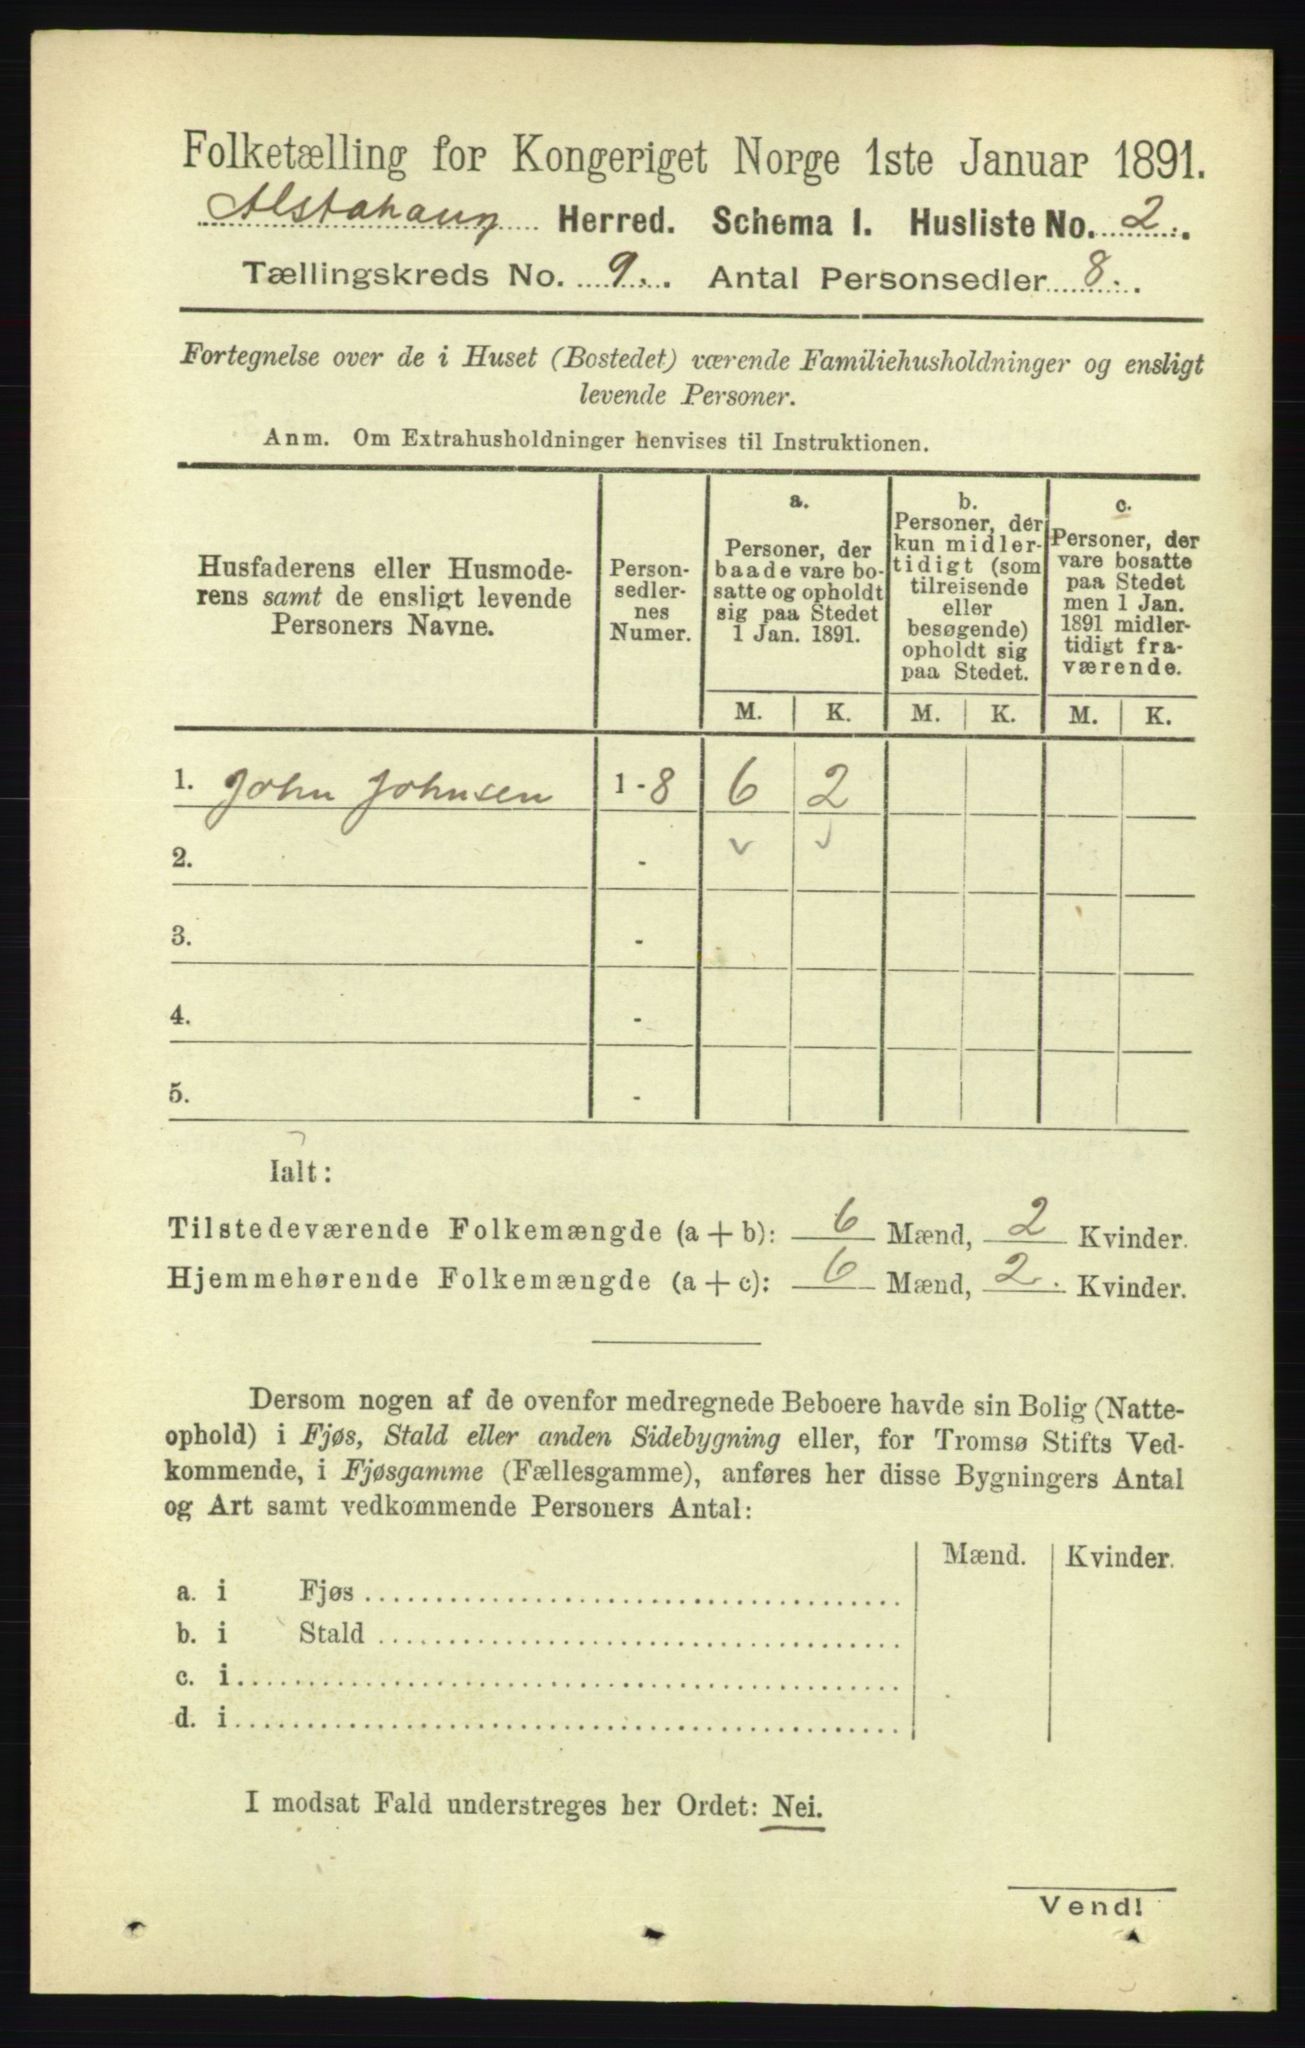 Folketælling for Kongeriget Norge 1ste Januar 1891.
Alstahaug Herred. Schema I. Husliste No. 2.
Tællingskreds No. 9. Antal Personsedler 8.
Fortegnelse over de i Huset (Bostedet) værende Familiehusholdninger og ensligt
levende Personer.
Anm. Om Extrahusholdninger henvises til Instruktionen.
Husfaderens eller Husmode-
rens samt de ensligt levende
Personers Navne.
Person-
sedler-
nes
Numer.
a.
Personer, der
baade vare bo-
satte og opholdt
sig paa Stedet
1 Jan. 1891.
b.
Personer, der
kun midler-
tidigt (som
tilreisende
eller
besøgende)
opholdt sig
paa Stedet.
c.
Personer, der
vare bosatte
paa Stedet
men 1 Jan.
1891 midler-
tidigt fra-
værende.
M. K. M. K. M. K.
1. John Johnsen 1-8 6 2
2. -
3. -
4. -
5. -
Ialt:
Tilstedeværende Folkemængde (a + b): 6 Mænd, 2 Kvinder.
Hjemmehørende Folkemængde (a + c): 6 Mænd, 2. Kvinder.
Dersom nogen af de ovenfor medregnede Beboere havde sin Bolig (Natte-
ophold) i Fjøs, Stald eller anden Sidebygning eller, for Tromsø Stifts Ved-
kommende, i Fjøsgamme (Fællesgamme), anføres her disse Bygningers Antal
og Art samt vedkommende Personers Antal:
Mænd. Kvinder.
a. i Fjøs
b. i Stald
c. i
d. i
I modsat Fald understreges her Ordet: Nei.
Vend!